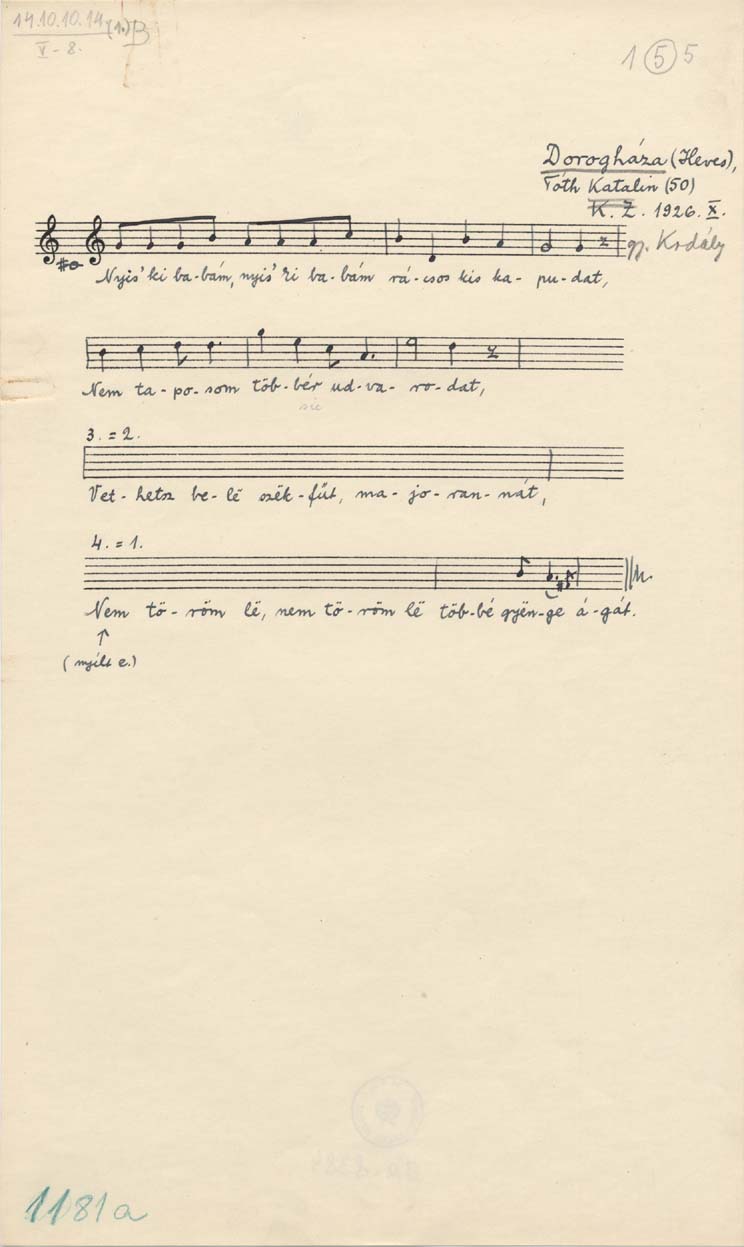 14.10.10.14 (1.) B
V - 8.
1 5 5
Dorogháza (Heves),
Tóth Katalin (50)
K. Z. 1926. X.
gy. Kodály
Nyis' ki ba-bám, nyis' ki ba-bám rá-csos kis ka-pu-dat,
Nem ta-po-som töb-bér ud-va-ro-dat,
sic
3. = 2.
Vet-hetsz be-lé szëk-fűt, ma-jo-ran-nát,
4. = 1.
Nem tö-röm lë, nem tö-röm lë töb-bé gyën-ge á-gát.
(nyílt e.)
1181a